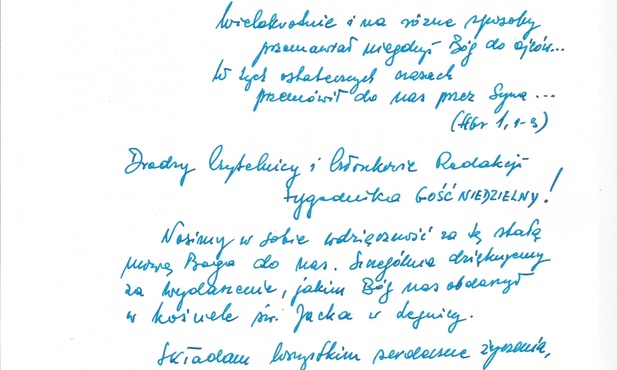 Wielokrotnie i na różne sposoby
przemawiał niegdyś Bóg do ojców...
W tych ostatecznych czasach
przemówił do nas przez Syna...
(Hbr 1, 1-3)
Drodzy Czytelnicy i Członkowie Redakcji
tygodnika GOŚĆ NIEDZIELNY!
Nosimy w sobie wdzięczność za tę stałą
mowę Boga do nas. Szczególnie dziękujemy
za wydarzenie, jakim Bóg nas obdarzył
w kościele św. Jacka w Legnicy.
Składam wszystkim serdeczne życzenia,